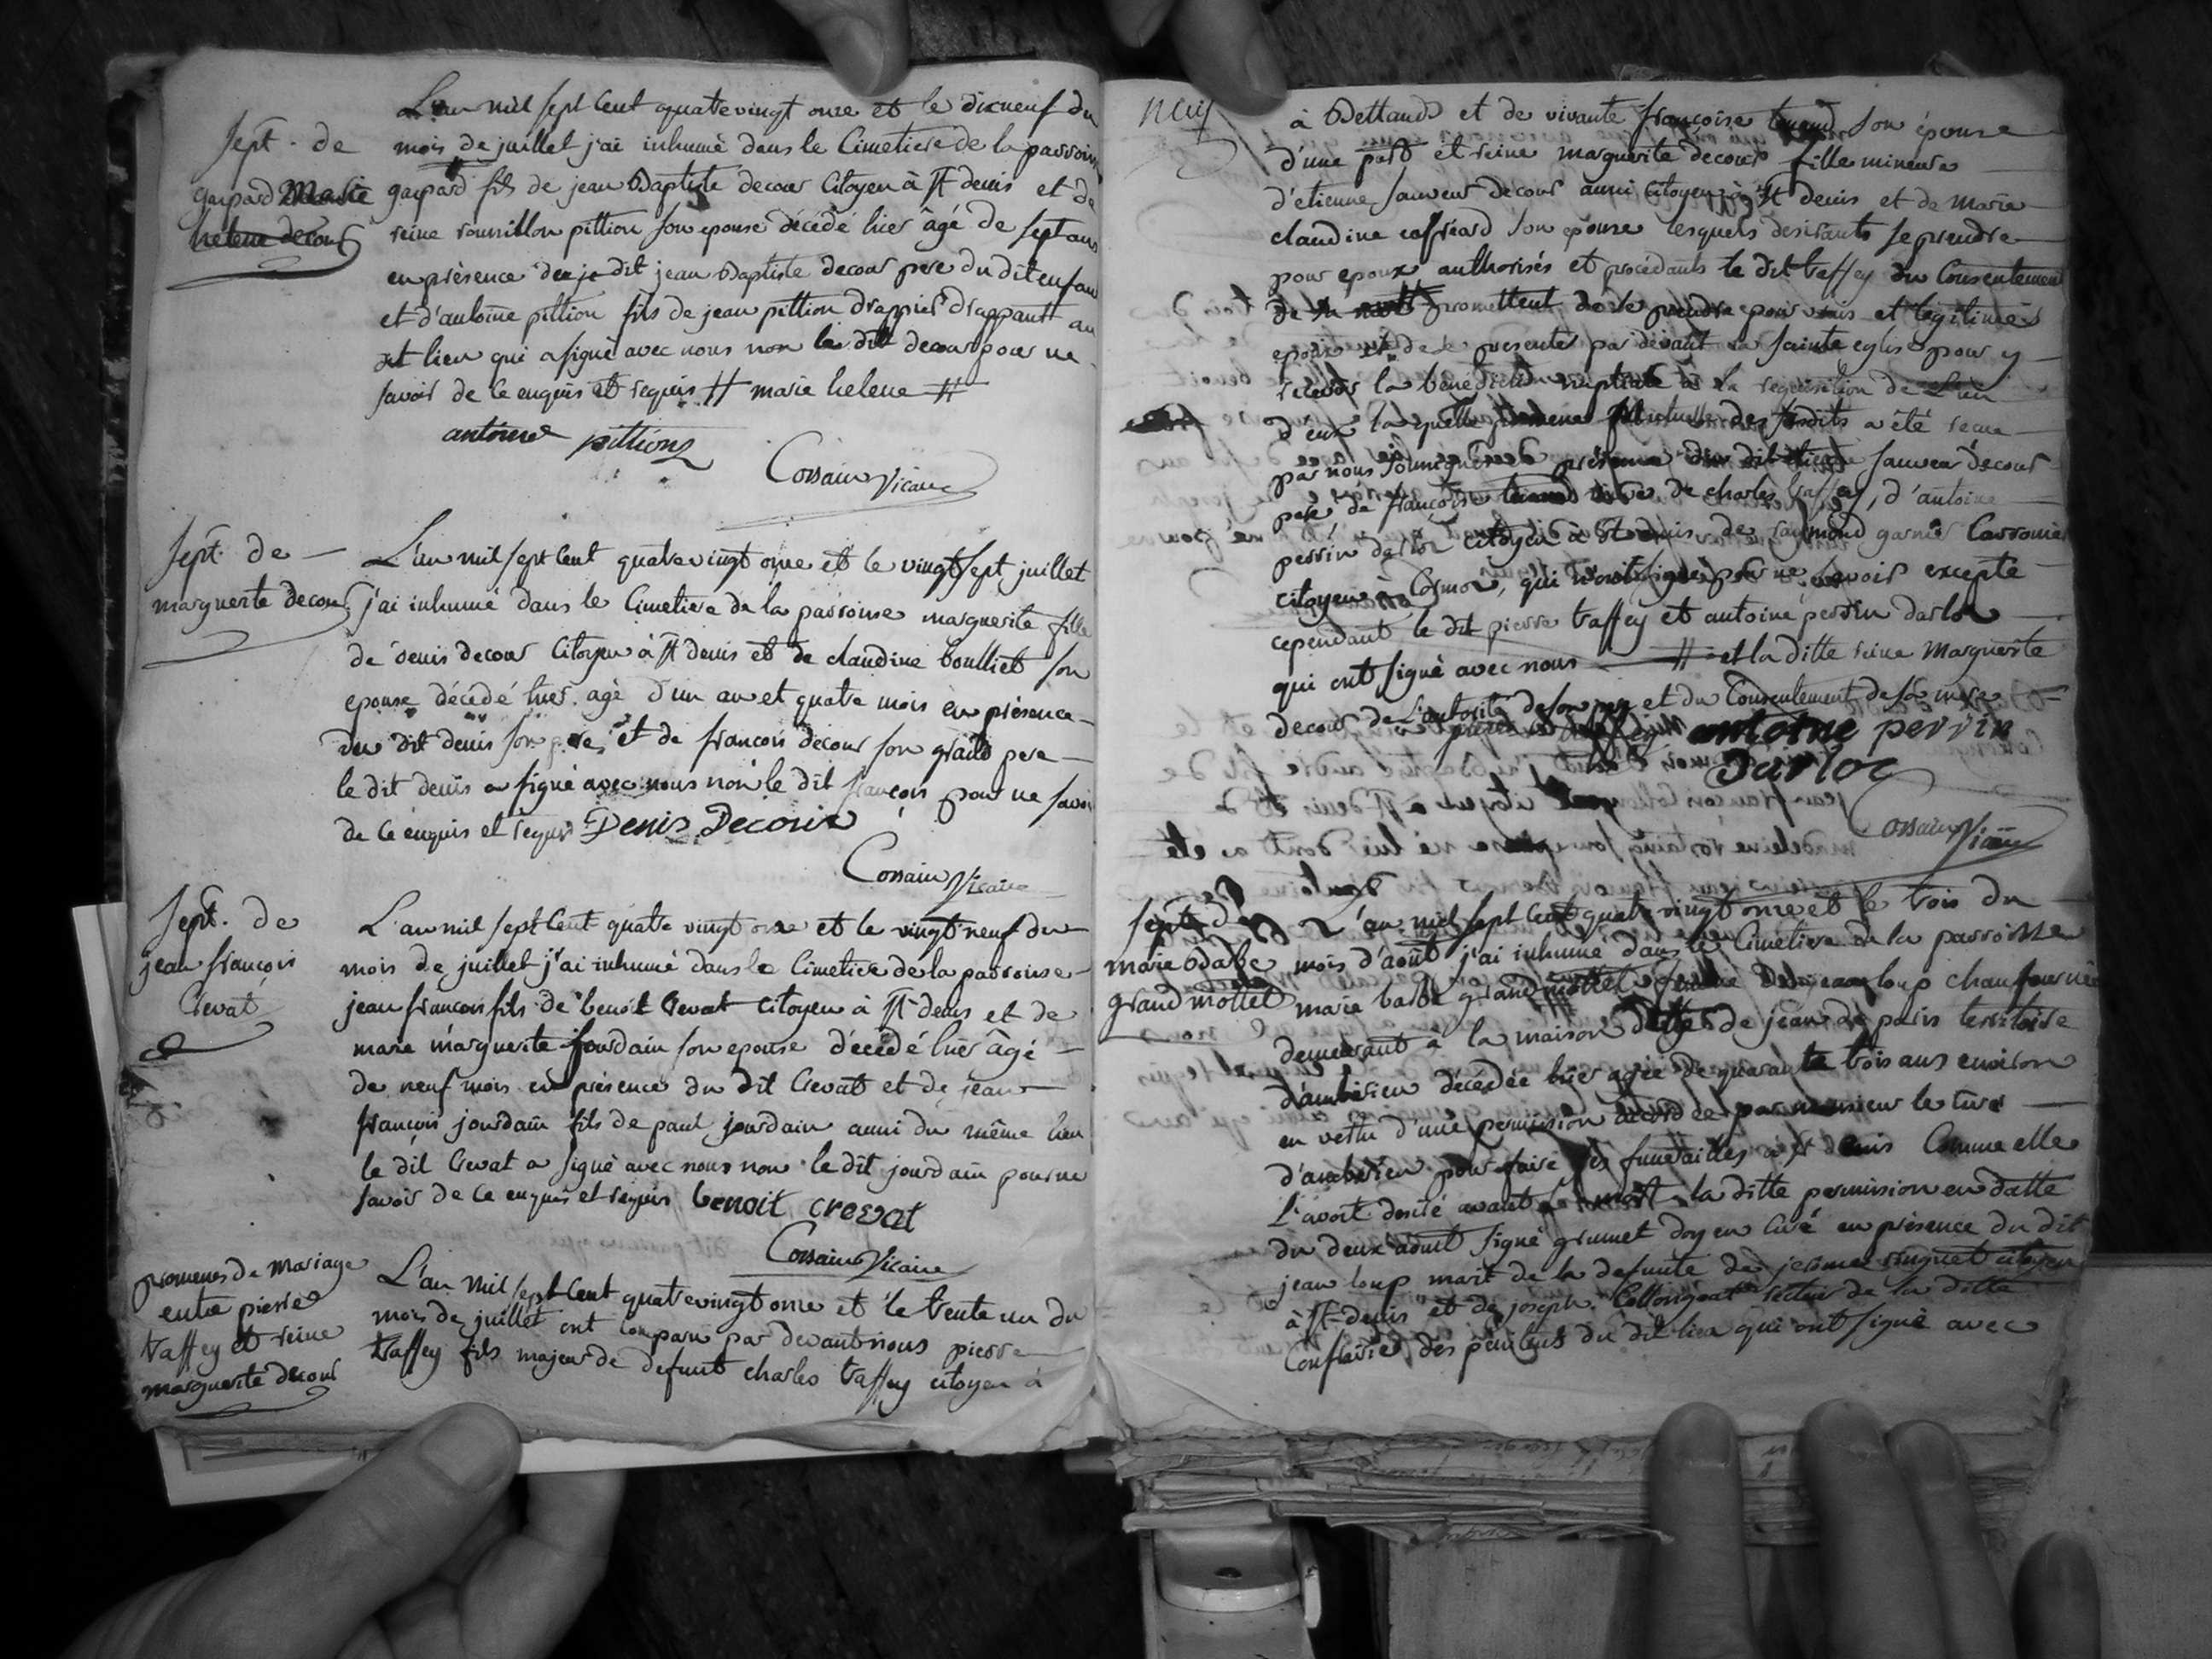 L'an mil sept cent quatrevingt onze et le dixneuf du
Sept. de
mois de juillet j'ai inhumé dans le Cimetiere de la parroisse
gaspard Marie
helene decour
gaspard fils de jean Baptiste decour Citoyen à St denis et de
reine pittion son epouse décédé hier âgé de sept ans
en présence du dit jean Baptiste decour pere du dit enfan
et d'antoine pittion fils de jean pittion drappier drappant au
dit lieu qui a signé avec nous non le dit decour pour ne
savoir de ce enquis et requis # marie helene #
antoine pittion
Cossain Vicaire
Sept. de
marguerite decour
L'an mil sept cent quatrevingt onze et le vingt sept juillet
j'ai inhumé dans le Cimetiere de la parroisse marguerite fille
de denis decour Citoyen à St denis et de claudine boulliet son
epouse décédé hier agé d'un an et quatre mois en présence
du dit denis son pere, et de francois decour son grand pere
le dit denis a signé avec nous non le dit francois pour ne savoir
de ce enquis et requis Denis Decour
Cossain Vicaire
Sept. de
jean françois
Crevat
L'an mil sept cent quatre vingt onze et le vingt neuf du
mois de juillet j'ai inhumé dans le Cimetiere de la parroisse
jean francois fils de benoit Crevat Citoyen à St denis et de
marie marguerite jourdain son epouse décédé hier âgé
de neuf mois en présence du dit Crevat et de jean
françois jourdain fils de paul jourdain aussi du même lieu
le dit Crevat a signé avec nous non le dit jourdain pour ne
savoir de ce enquis et requis benoit crevat
Cossain Vicaire
promesses de mariage
entre pierre
traffey et reine
marguerite decour
L'an mil sept cent quatrevingt onze et le trente un du
mois de juillet ont comparu par devant nous pierre
traffey fils majeur de defunt charles traffey citoyen à
neuf
à Bettand et de vivante françoise son épouse
d'une part et reine marguerite decour fille mineure
d'étienne sauveur decour aussi Citoyen à St denis et de marie
claudine son épouse lesquels désirants se prendre
pour epoux authorisés et procédants le dit traffey du Consentement
de promettent de se prendre pour vrais et légitimes
epoux et de se presenter par devant la sainte eglise pour y
recevoir la bénédiction nuptiale à la requisition de L'un
d'eux la quelle promesse des susdits a été recue
par nous soussigné en présence du dit etienne sauveur decour
pere de françoise de charles traffey, d'antoine
perrin darloz citoyen à St denis de raymond garnier
citoyen à Cormoz, qui n'ont signé pour ne savoir excepté
cependant le dit pierre traffey et antoine perrin darloz
qui ont signé avec nous # et la ditte reine Marguerite
decour de L'autorité de son pere et du Consentement de sa mere
pierre traffey antoine perrin
Darloz
Cossain Vicaire
Sept. de
marie Babe
grand mottet
L'an mil sept cent quatre vingt onze et le trois du
mois d'août j'ai inhumé dans le Cimetiere de la parroisse
marie barbe grand mottet femme de jean loup chaufournié
demeurant à la maison ditte de jean de paris territoire
d'amberieu décédée hier agée de quarante trois ans environ
en vertu d'une permission accordée par monsieur le Curé
d'amberieu pour faire ses funerailles à St denis Comme elle
L'avoit desiré avant sa mort, la ditte permission en datte
du deux août signé grumet doyen Curé en présence du dit
jean loup mari de la defunte de jerome citoyen
à St denis et de joseph Collongeat recteur de la ditte
Confrairie des penitens du dit lieu qui ont signé avec